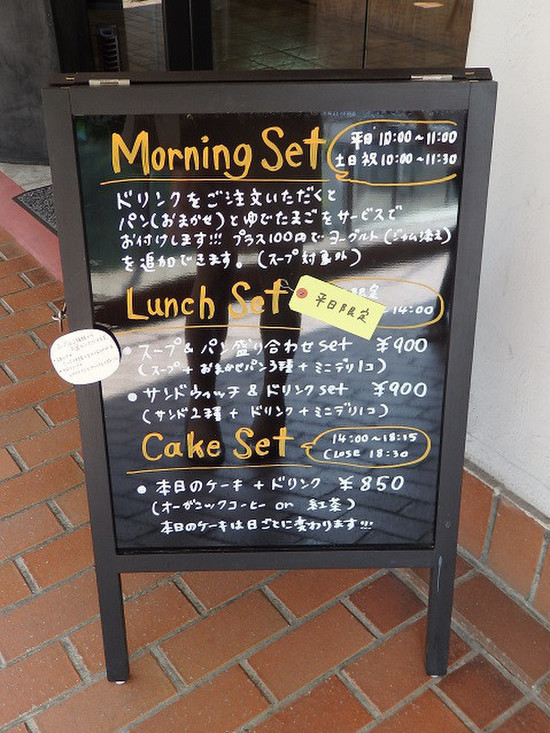 Morning Set
平日 10:00~11:00
土日祝 10:00~11:30
ドリンクをご注文いただくと
パン(おまかせ)とゆでたまごをサービスで
お付けします!!! プラス100円でヨーグルト(ジャム添え)
を追加できます。(スープ対象外)
Lunch Set
平日限定
~14:00
• スープ&パン盛り合わせ set ¥900
(スープ + おまかせパン3種 + ミニデリ1コ)
• サンドウィッチ & ドリンク set ¥900
(サンド2種 + ドリンク + ミニデリ1コ)
Cake Set
14:00~18:15
CLOSE 18:30
• 本日のケーキ + ドリンク ¥850
(オーガニックコーヒー or 紅茶)
本日のケーキは日ごとに変わります!!!